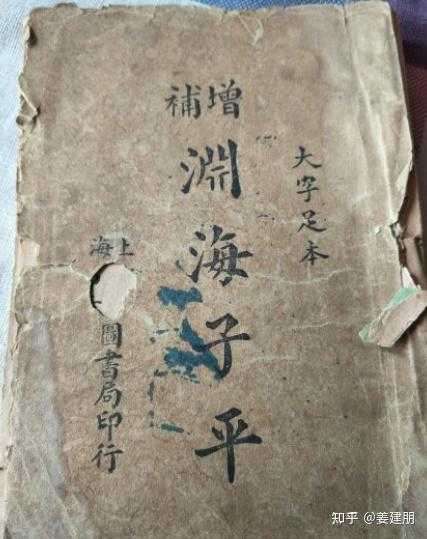 大字足本
增補
淵海子平
上海
圖書局印行
知乎 @姜建朋